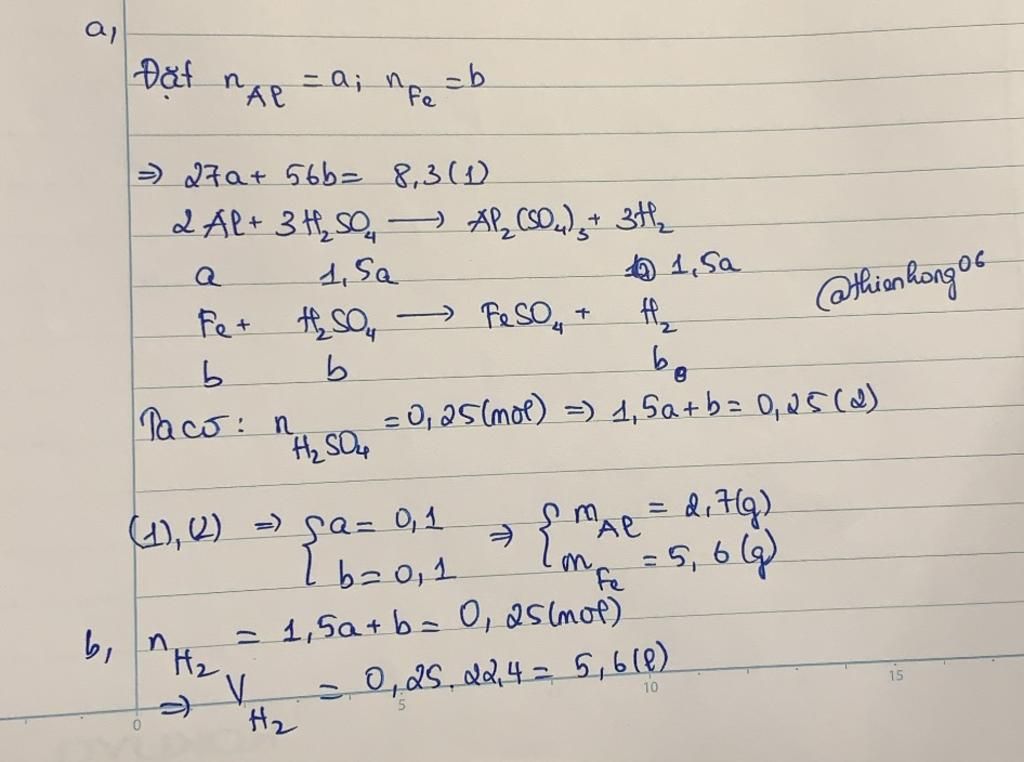 a,
Đặt n_Al = a; n_Fe = b
⇒ 27a + 56b = 8,3 (1)
2Al + 3H₂SO₄ ⟶ Al₂(SO₄)₃ + 3H₂
a 1,5a 1,5a
@thienhong06
Fe + H₂SO₄ ⟶ FeSO₄ + H₂
b b b
Ta có: n_H₂SO₄ = 0,25 (mol) ⇒ 1,5a + b = 0,25 (2)
(1), (2) ⇒ { a = 0,1 ⇒ { m_Al = 2,7 (g)
b = 0,1 m_Fe = 5,6 (g)
b, n_H₂ = 1,5a + b = 0,25 (mol)
⇒ V_H₂ = 0,25.22,4 = 5,6 (l)
0 5 10 15